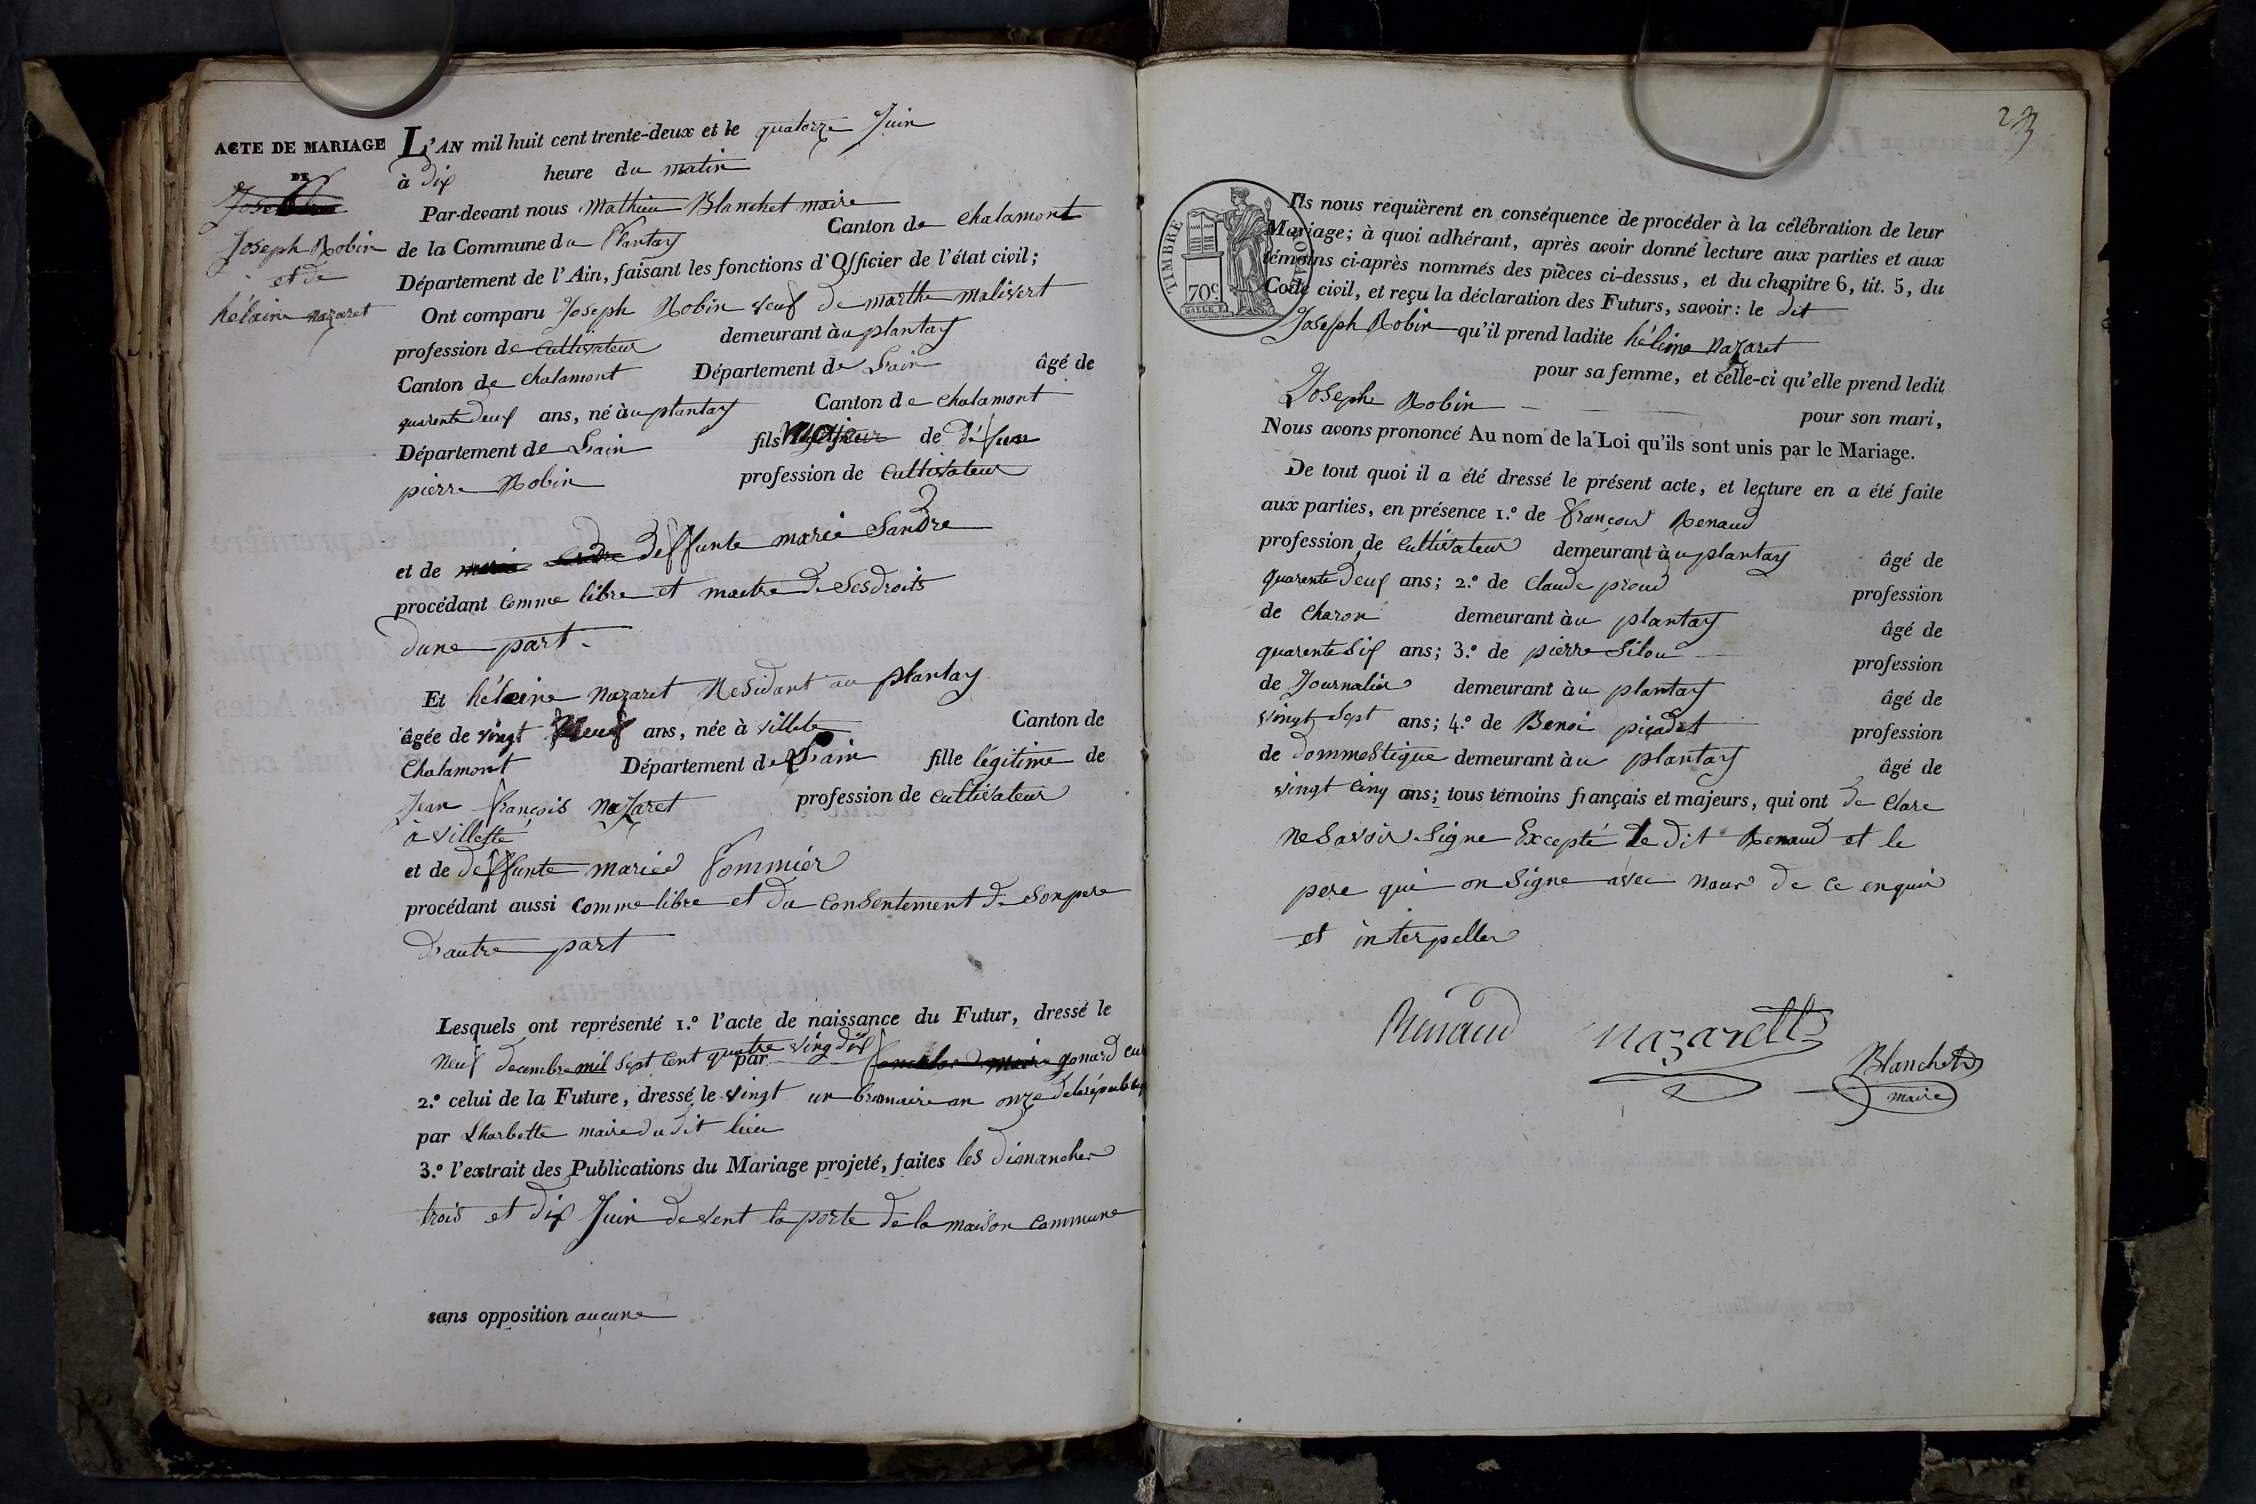 ACTE DE MARIAGE
DE
Joseph Robin
et de
hélaine nazaret
L'AN mil huit cent trente-deux et le quatorze Juin
à dix heure du matin
Par-devant nous Mathieu Blanchet maire
de la Commune du Plantay Canton de Chalamont
Département de l'Ain, faisant les fonctions d'Officier de l'état civil;
Ont comparu Joseph Robin veuf de marthe malivert
profession de Cultivateur demeurant à au plantay
Canton de Chalamont Département de Lain âgé de
quarente deux ans, né à au plantay Canton de Chalamont
Département de Lain fils majeur de défun
pierre Robin profession de Cultivateur
et de deffunte marie Sandre
procédant Comme libre et maetre de Ses droits
dune part.
Et hélaine nazaret Residant au plantay
âgée de vingt neuf ans, née à villete Canton de
Chalamont Département de Lain fille légitime de
Jean françois nazaret profession de Cultivateur
à villette
et de deffunte marie Pommier
procédant aussi Comme libre et du Consentement de Son pere
d'autre part
Lesquels ont représenté 1.º l'acte de naissance du Futur, dressé le
neuf decembre mil Sept Cent quatre ving dix par gonard
2.º celui de la Future, dressé le vingt un brumaire an onze de la républiq
par Lharbette maire du dit lieu
3.º l'extrait des Publications du Mariage projeté, faites les dimanches
trois et dix Juin devent la porte de la maison Commune
sans opposition aucune
23
TIMBRE ROYAL
70c
Ils nous requièrent en conséquence de procéder à la célébration de leur
Mariage; à quoi adhérant, après avoir donné lecture aux parties et aux
témoins ci-après nommés des pièces ci-dessus, et du chapitre 6, tit. 5, du
Code civil, et reçu la déclaration des Futurs, savoir: le dit
Joseph Robin qu'il prend ladite héleine nazaret
pour sa femme, et celle-ci qu'elle prend ledit
Joseph Robin pour son mari,
Nous avons prononcé Au nom de la Loi qu'ils sont unis par le Mariage.
De tout quoi il a été dressé le présent acte, et lecture en a été faite
aux parties, en présence 1.º de françois Renaud
profession de Cultivateur demeurant à au plantay âgé de
quarente deux ans; 2.º de Claude proud profession
de Charon demeurant à au plantay âgé de
quarente Six ans; 3.º de pierre Silou profession
de Journalier demeurant à au plantay âgé de
vingt Sept ans; 4.º de Benoi picadet profession
de dommestique demeurant à au plantay âgé de
vingt cinq ans; tous témoins français et majeurs, qui ont de Clare
ne Savoir Signe Excepté le dit Renaud et le
pere qui on Signe avec nous de ce enquis
et interpeller
Renaud nazarett
Blanchet
maire